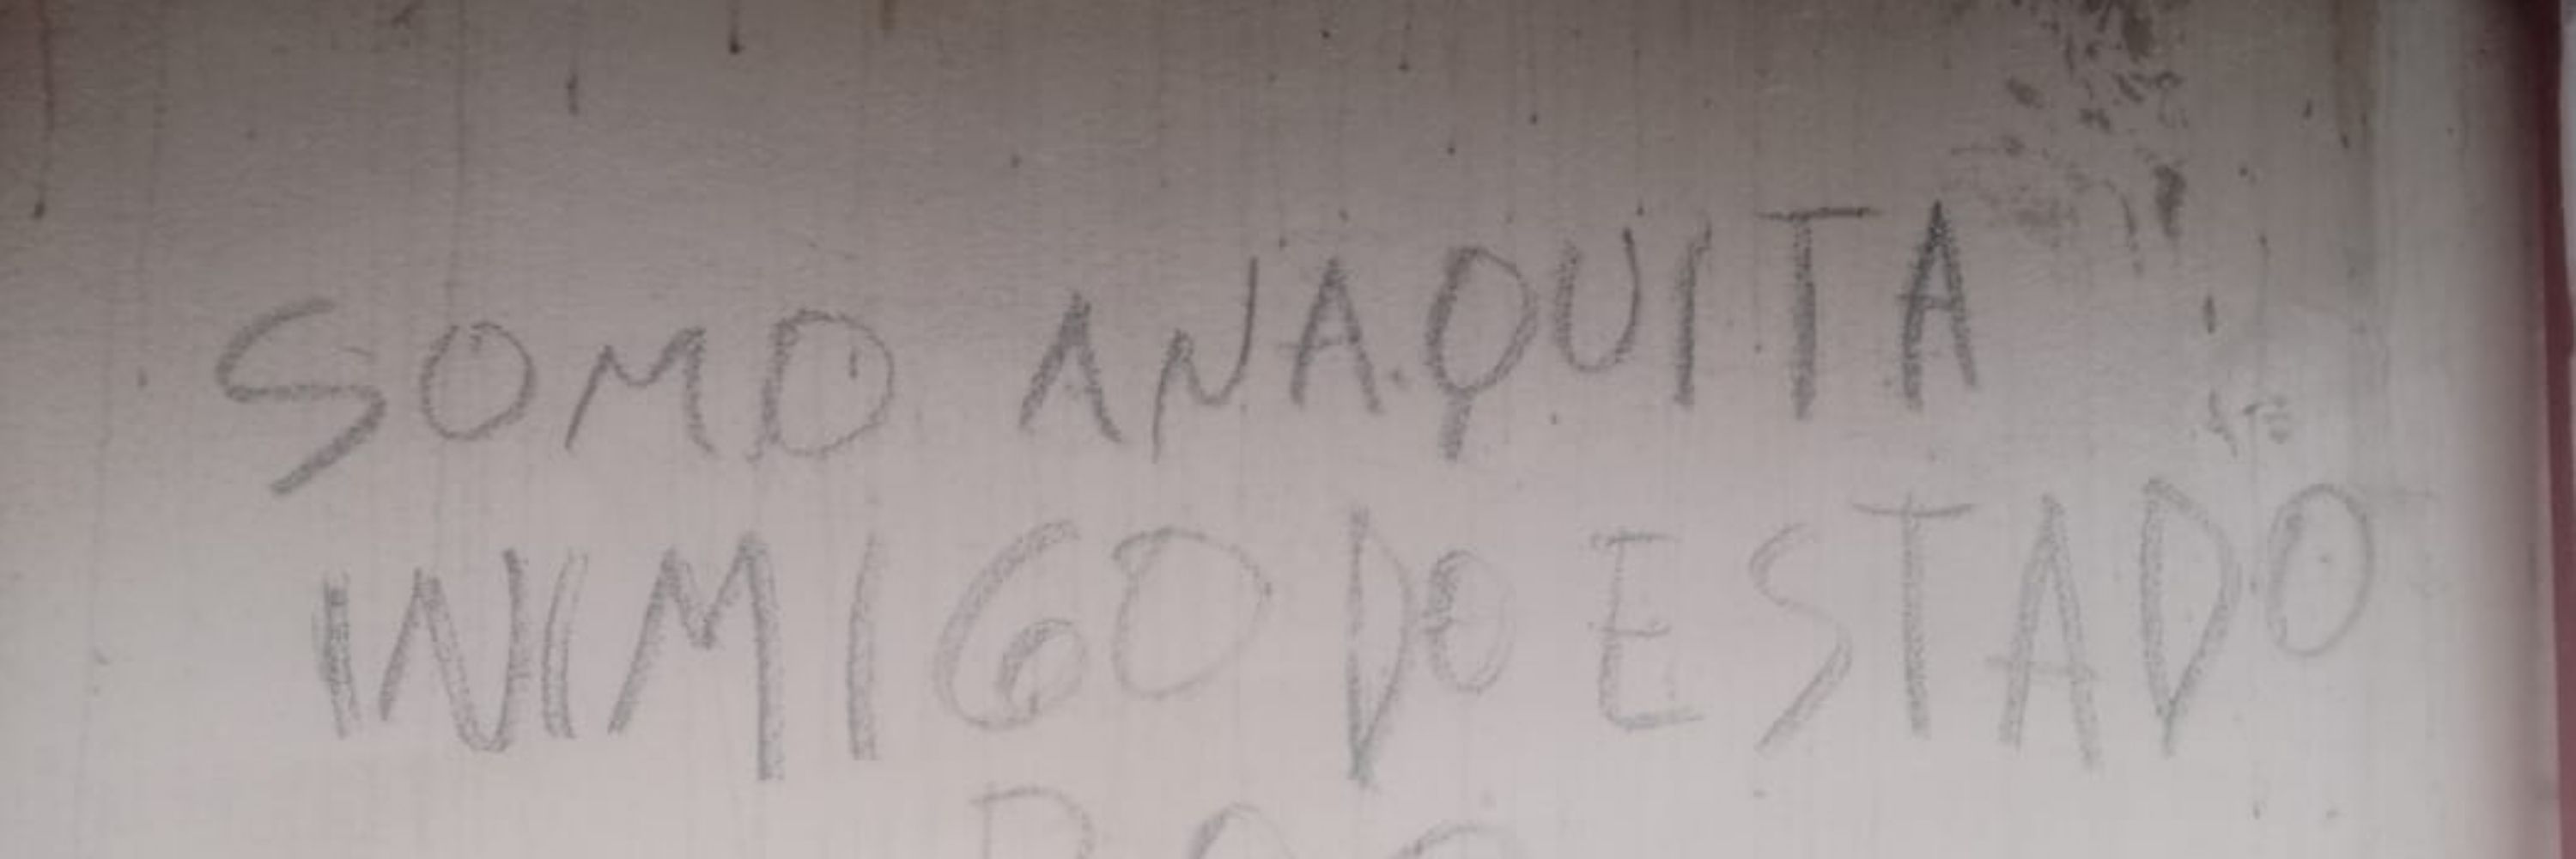 SOMO ANAQUITA
INIMIGO DO ESTADO